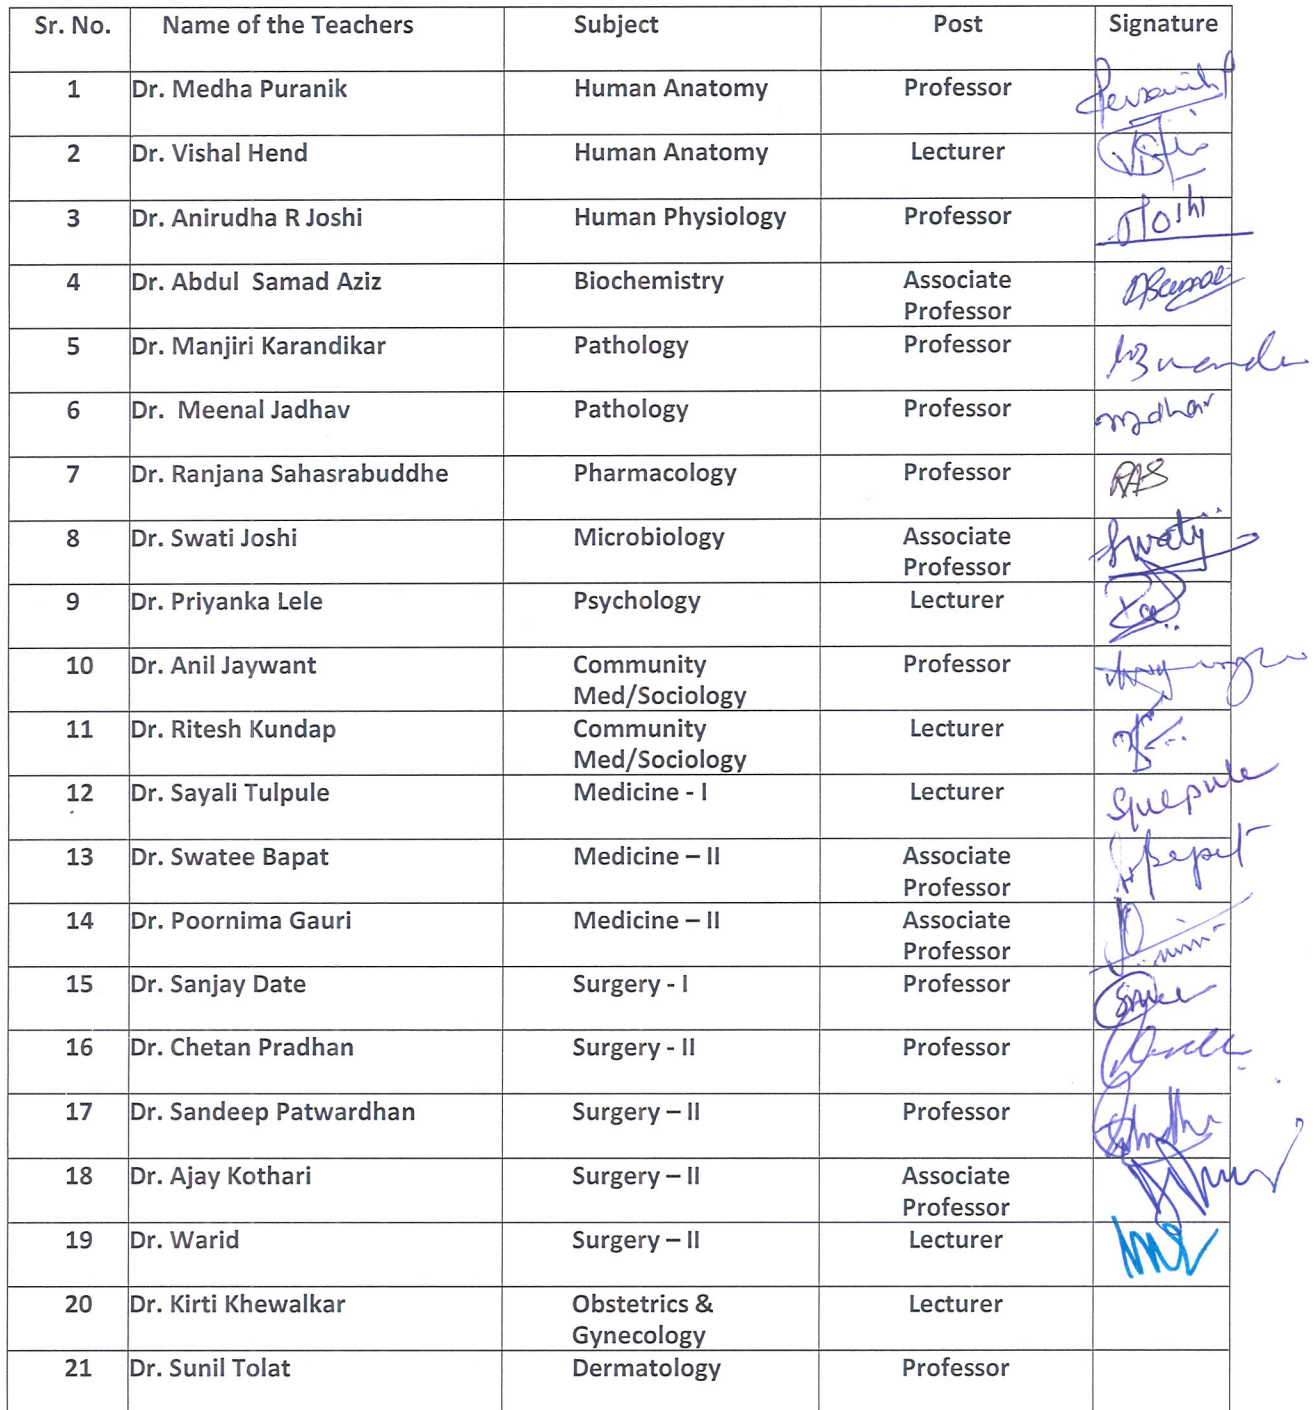 Sr. No. Name of the Teachers Subject Post Signature
1 Dr. Medha Puranik Human Anatomy Professor
2 Dr. Vishal Hend Human Anatomy Lecturer
3 Dr. Anirudha R Joshi Human Physiology Professor Joshi
4 Dr. Abdul Samad Aziz Biochemistry Associate
Professor
5 Dr. Manjiri Karandikar Pathology Professor
6 Dr. Meenal Jadhav Pathology Professor
7 Dr. Ranjana Sahasrabuddhe Pharmacology Professor RAS
8 Dr. Swati Joshi Microbiology Associate
Professor
9 Dr. Priyanka Lele Psychology Lecturer
10 Dr. Anil Jaywant Community Professor
Med/Sociology
11 Dr. Ritesh Kundap Community Lecturer
Med/Sociology
12 Dr. Sayali Tulpule Medicine - I Lecturer
13 Dr. Swatee Bapat Medicine – II Associate
Professor
14 Dr. Poornima Gauri Medicine – II Associate
Professor
15 Dr. Sanjay Date Surgery - I Professor
16 Dr. Chetan Pradhan Surgery - II Professor
17 Dr. Sandeep Patwardhan Surgery – II Professor
18 Dr. Ajay Kothari Surgery – II Associate
Professor
19 Dr. Warid Surgery – II Lecturer
20 Dr. Kirti Khewalkar Obstetrics & Lecturer
Gynecology
21 Dr. Sunil Tolat Dermatology Professor